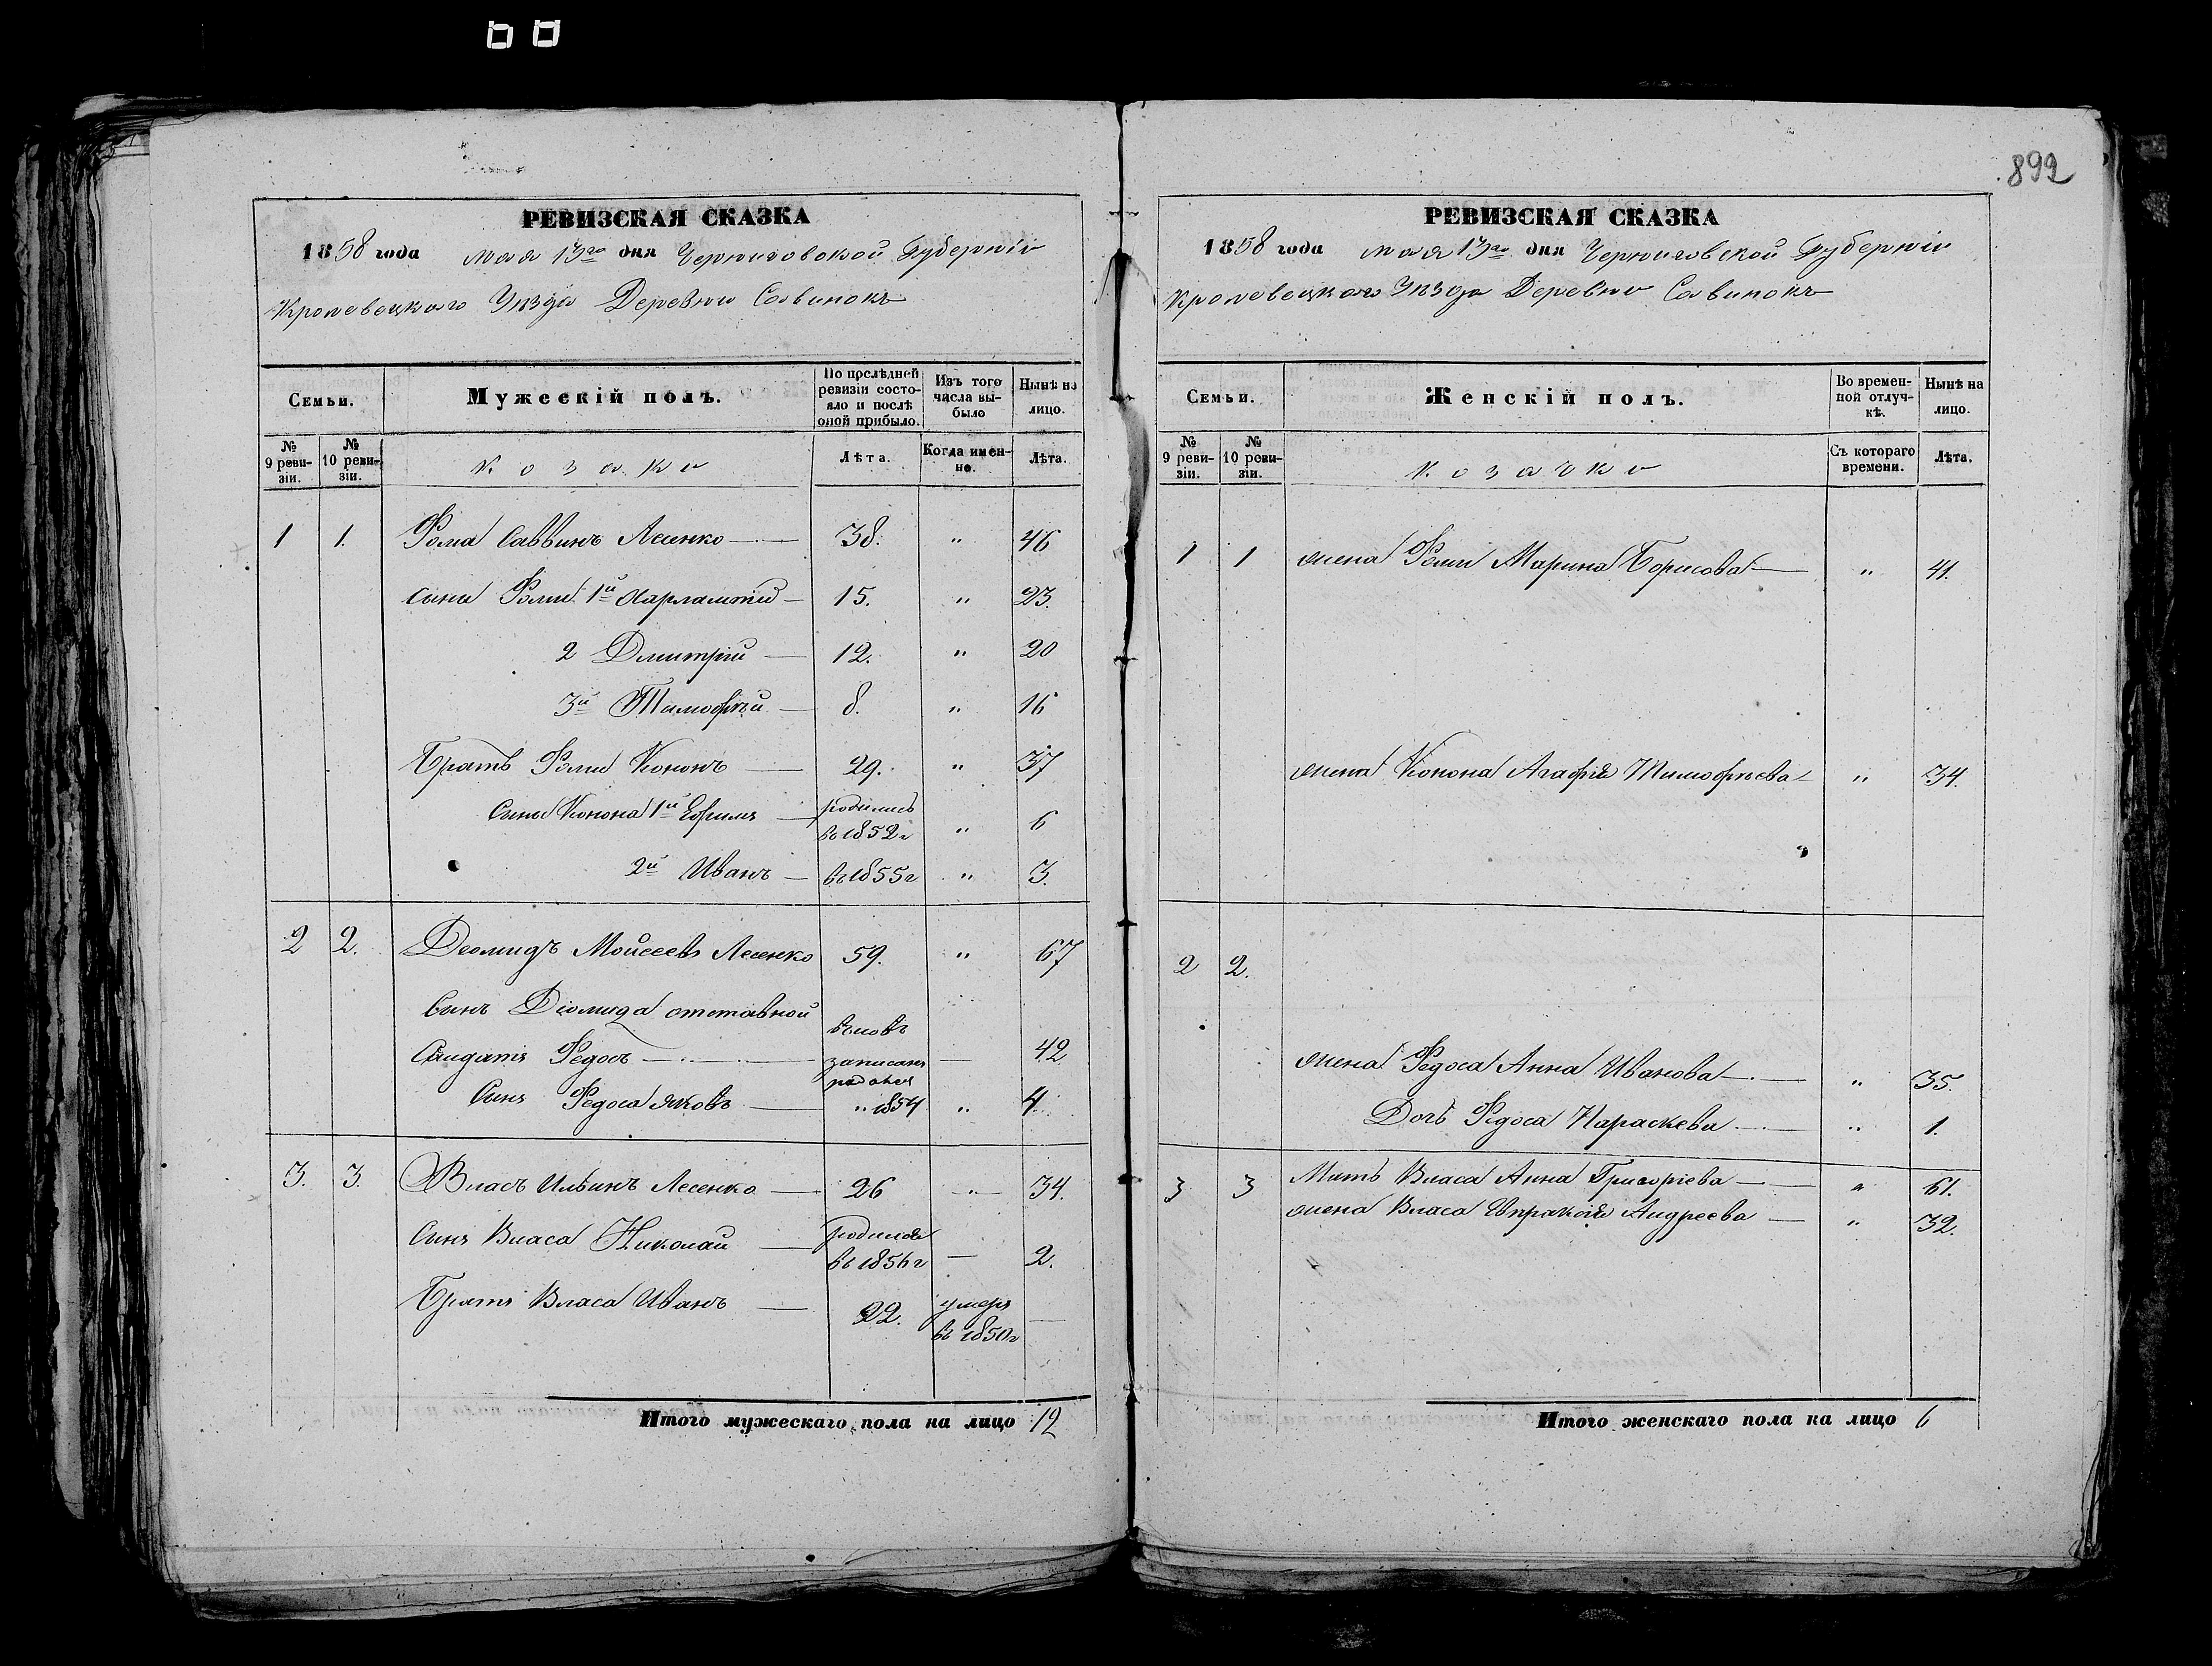 899
РЕВИЗСКАЯ СКАЗКА
1858 года мая 13го дня Черниговской Губерніи
Кролевецкого Уѣзда Деревни Савинокъ
Семьи.
Мужескій полъ.
По послѣдней ревизіи состояло и послѣ оной прибыло.
Изъ того числа выбыло
Нынѣ на лицо.
№ 9 ревизіи.
№ 10 ревизіи.
Козаки
Лѣта.
Когда именно.
Лѣта.
1 1. Фома Саввинъ Лесенко 38. " 46
сыны Фомы 1й Харлампій 15. " 23.
2 Дмитрій 12. " 20
3й Тимофѣй 8. " 16
Братъ Фомы Кононъ 29. " 37
Сыны Конона 1й Ефимъ родились въ 1852г " 6
2й Иванъ въ 1855г " 3.
2 2. Деомидъ Моисеевъ Лесенко 59. " 67
Сынъ Діомида отставной
Салдатъ Федосъ вновь записанъ 42
Сынъ Федоса Яковъ родился " 1854 " 4.
3. 3. Власъ Ильинъ Лесенко 26 " 34.
Сынъ Власа Николай родился въ 1856г 2.
Братъ Власа Иванъ 22. умеръ въ 1850г
Итого мужескаго пола на лицо 12
РЕВИЗСКАЯ СКАЗКА
1858 года мая 13го дня Черниговской Губерніи
Кролевецкого Уѣзда Деревни Савинокъ
Семьи.
Женскій полъ.
Во временной отлучкѣ.
Нынѣ на лицо.
№ 9 ревизіи.
№ 10 ревизіи.
Козачки
Съ котораго времени.
Лѣта.
1 1 жена Фомы Марина Борисова " 41.
жена Конона Агафія Тимофѣева " 34.
2 2.
жена Федоса Анна Иванова " 35.
Дочь Федоса Параскева " 1.
3 3 Мать Власа Анна Григоріева " 61.
жена Власа Евпраксія Андреева " 32.
Итого женскаго пола на лицо 6